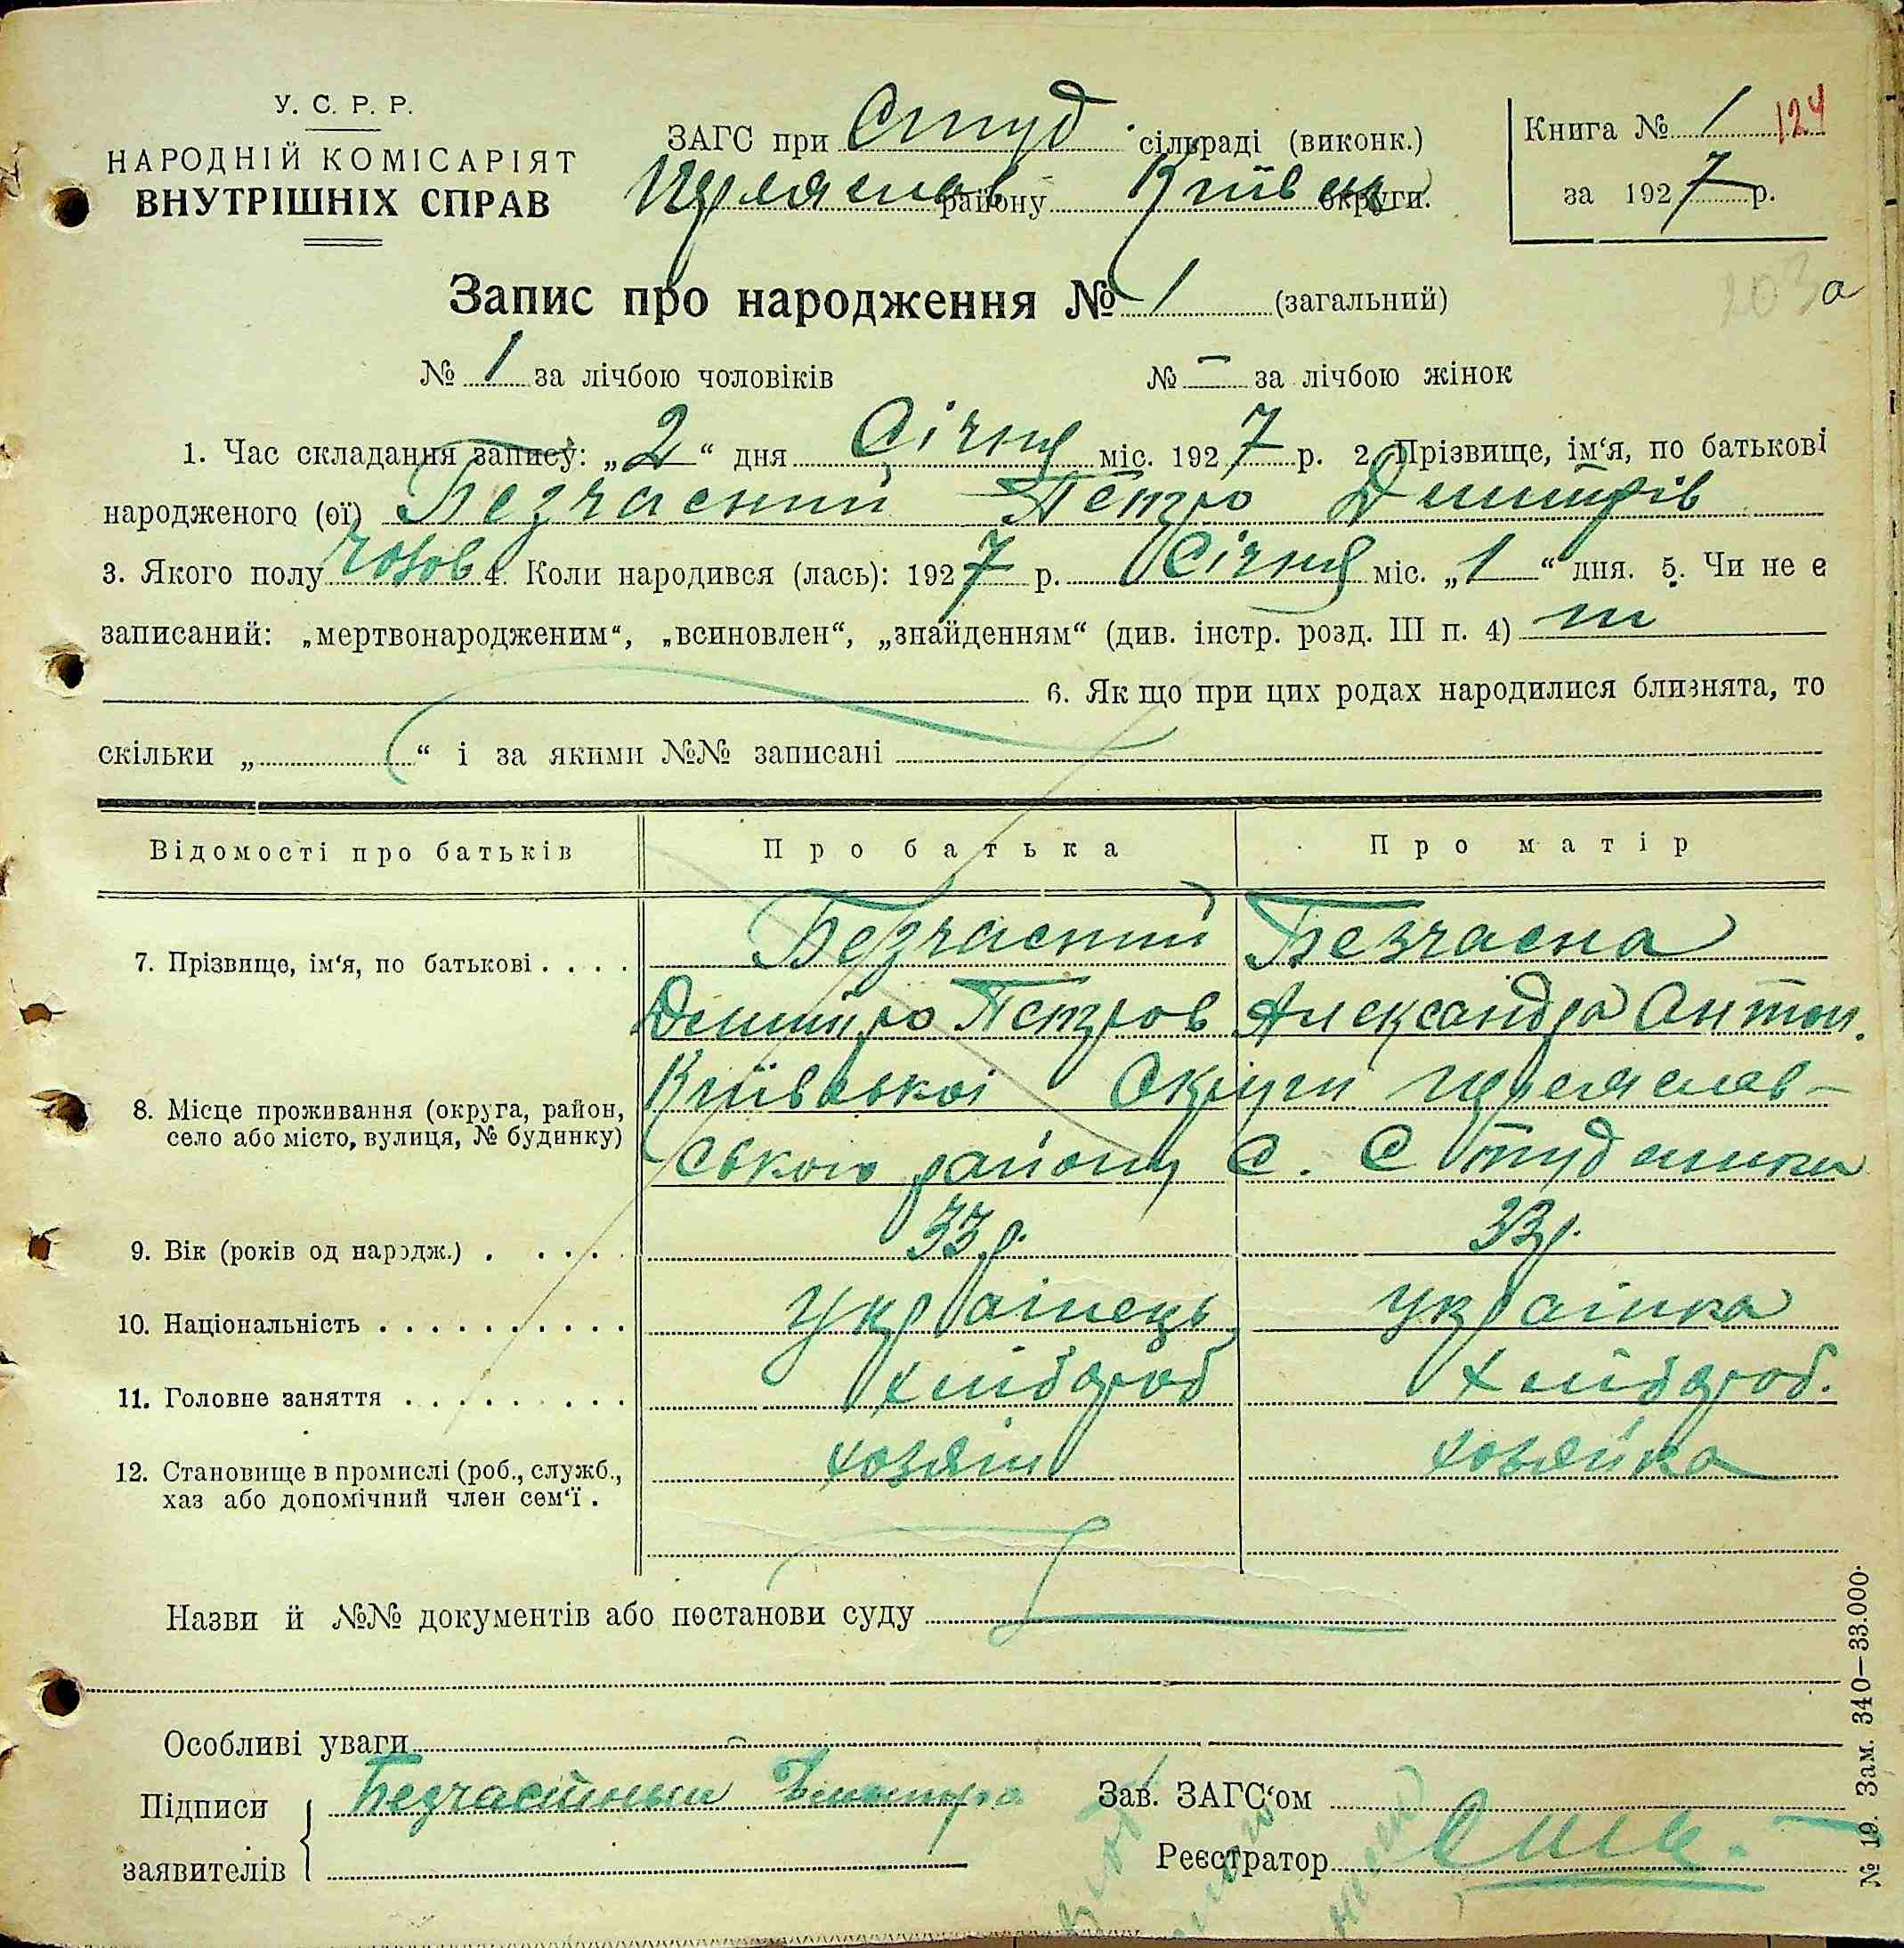 У. С. Р. Р.
НАРОДНІЙ КОМІСАРІЯТ
ВНУТРІШНІХ СПРАВ
ЗАГС при Студ сільраді (виконк.)
району округи.
Книга № 1 124
за 1927 р.
203 а
Запис про народження № 1 (загальний)
№ 1 за лічбою чоловіків № — за лічбою жінок
1. Час складання запису: „2“ дня Січня міс. 1927 р. 2. Прізвище, ім‘я, по батькові
народженого (ої) Безчасний Петро Дмитрів
3. Якого полу чолов 4. Коли народився (лась): 1927 р. Січня міс. „1“ дня. 5. Чи не є
записаний: „мертвонародженим“, „всиновлен“, „знайденням“ (див. інстр. розд. III п. 4)
6. Як що при цих родах народилися близнята, то
скільки „ “ і за якими №№ записані
Відомості про батьків Про батька Про матір
7. Прізвище, ім‘я, по батькові . . . . Безчасний Безчасна
Дмитро Петров Александра Антон.
8. Місце проживання (округа, район, Київської Округи
село або місто, вулиця, № будинку) ського району с. Студеники
9. Вік (років од народж.) . . . . . 33 р. 33 р.
10. Національність . . . . . . . . . . Українець Українка
11. Головне заняття . . . . . . . . . хлібороб хлібороб.
12. Становище в промислі (роб., служб., хозяін хозяйка
хаз або допомічний член сем‘ї .
Назви й №№ документів або постанови суду
Особливі уваги
Підписи Безчастный Зав. ЗАГС‘ом
заявителів Реєстратор
№ 19. Зам. 340—33.000.